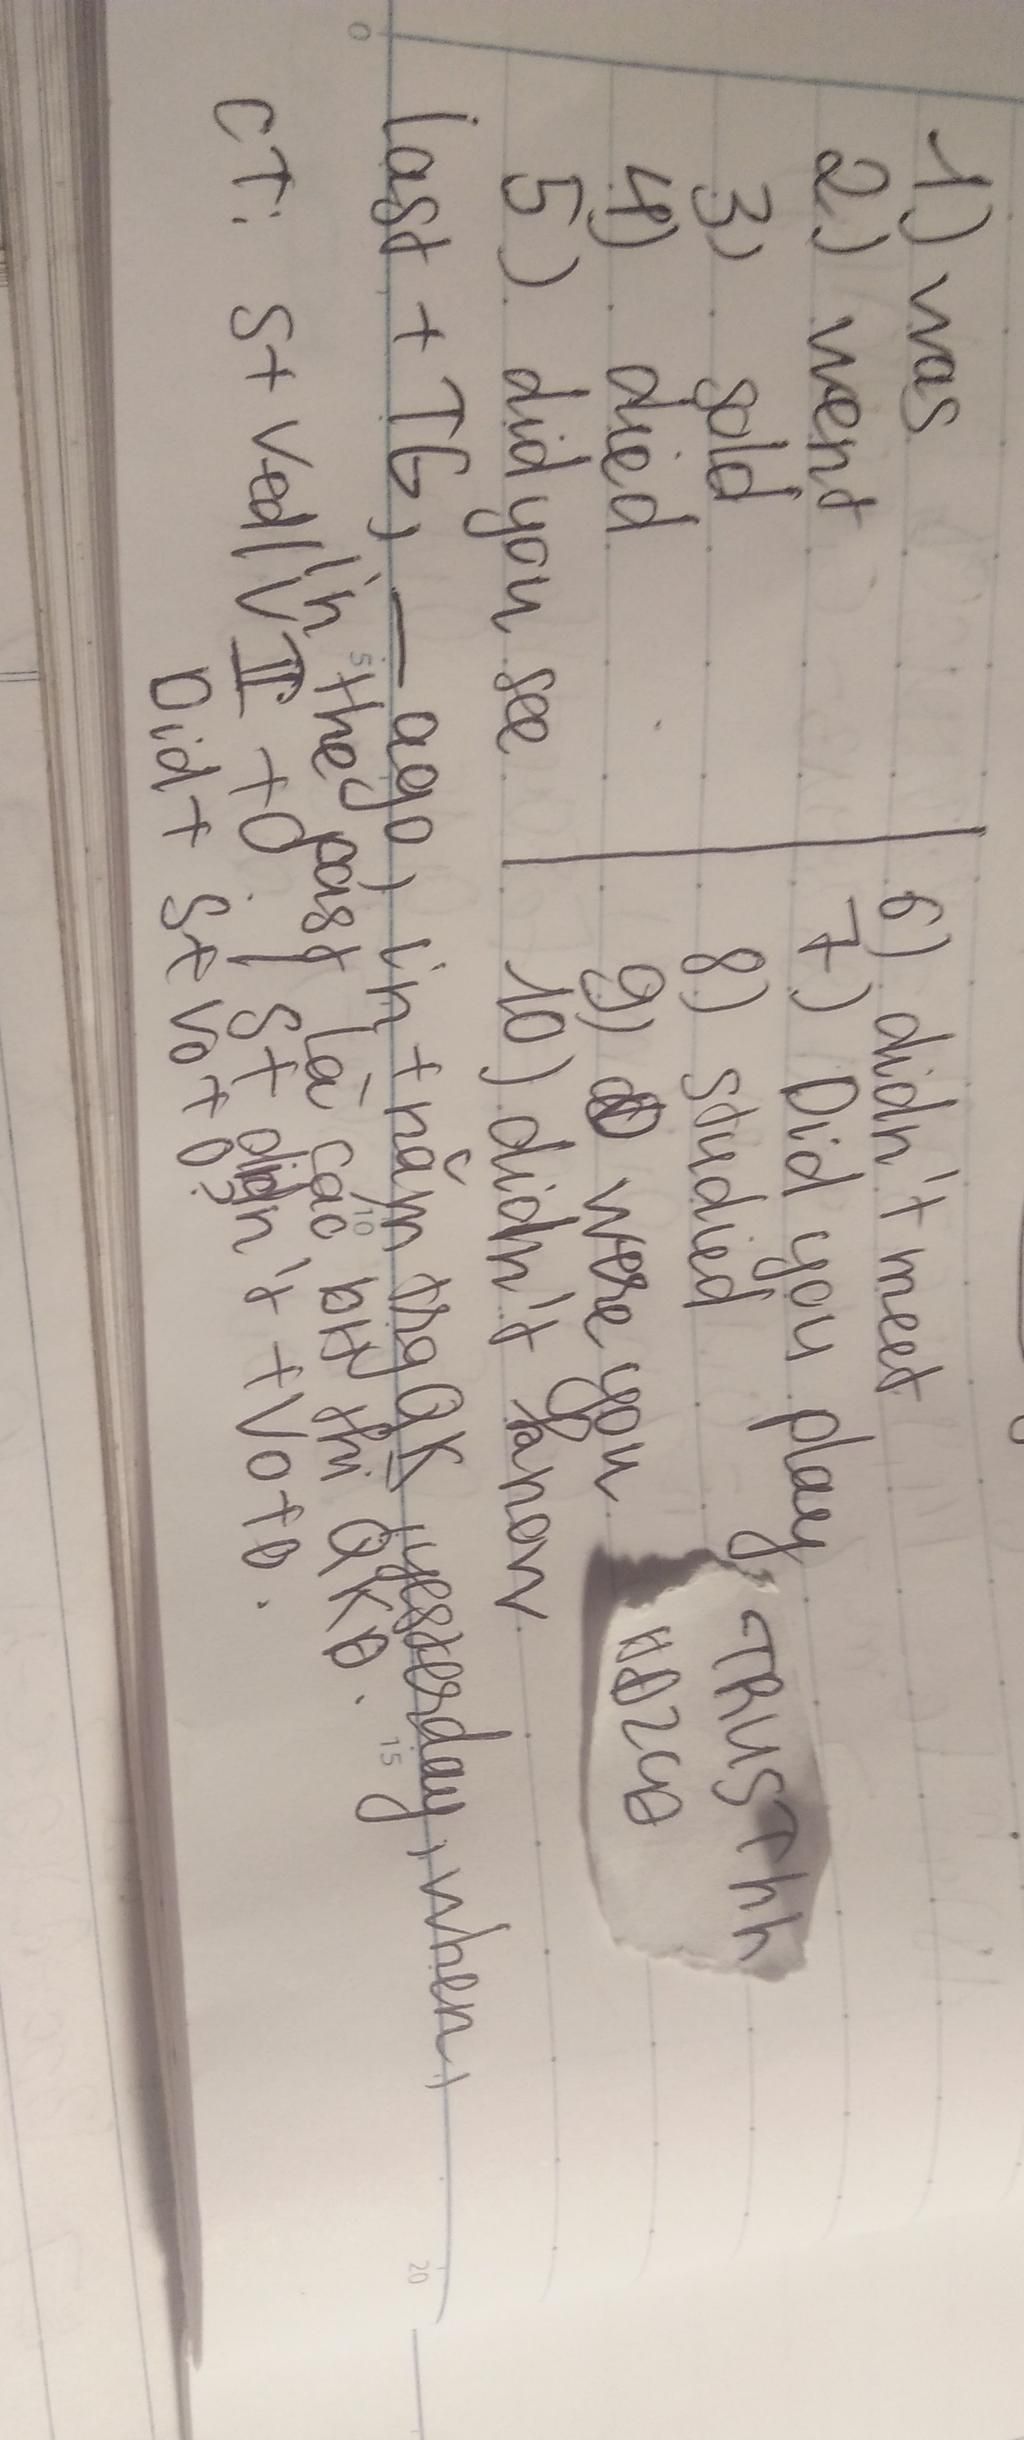 1) was
2) went
3) sold
4) died
5) did you see
6) didn't meet
7) Did you play
8) studied
9) were you
10) didn't know
TRUSTHh
last + TG, — ago, in + năm trg QK yesterday, when,
in the past là các btt thì QKĐ.
CT: S + Ved/VII + O | S + didn't + Vo + O.
Did + S + Vo + O?
0
5
10
15
20